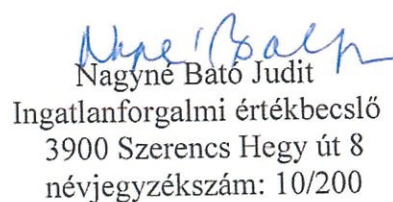 Nagyné Bató Judit
Ingatlanforgalmi értékbecslő
3900 Szerencs Hegy út 8
névjegyzékszám: 10/200